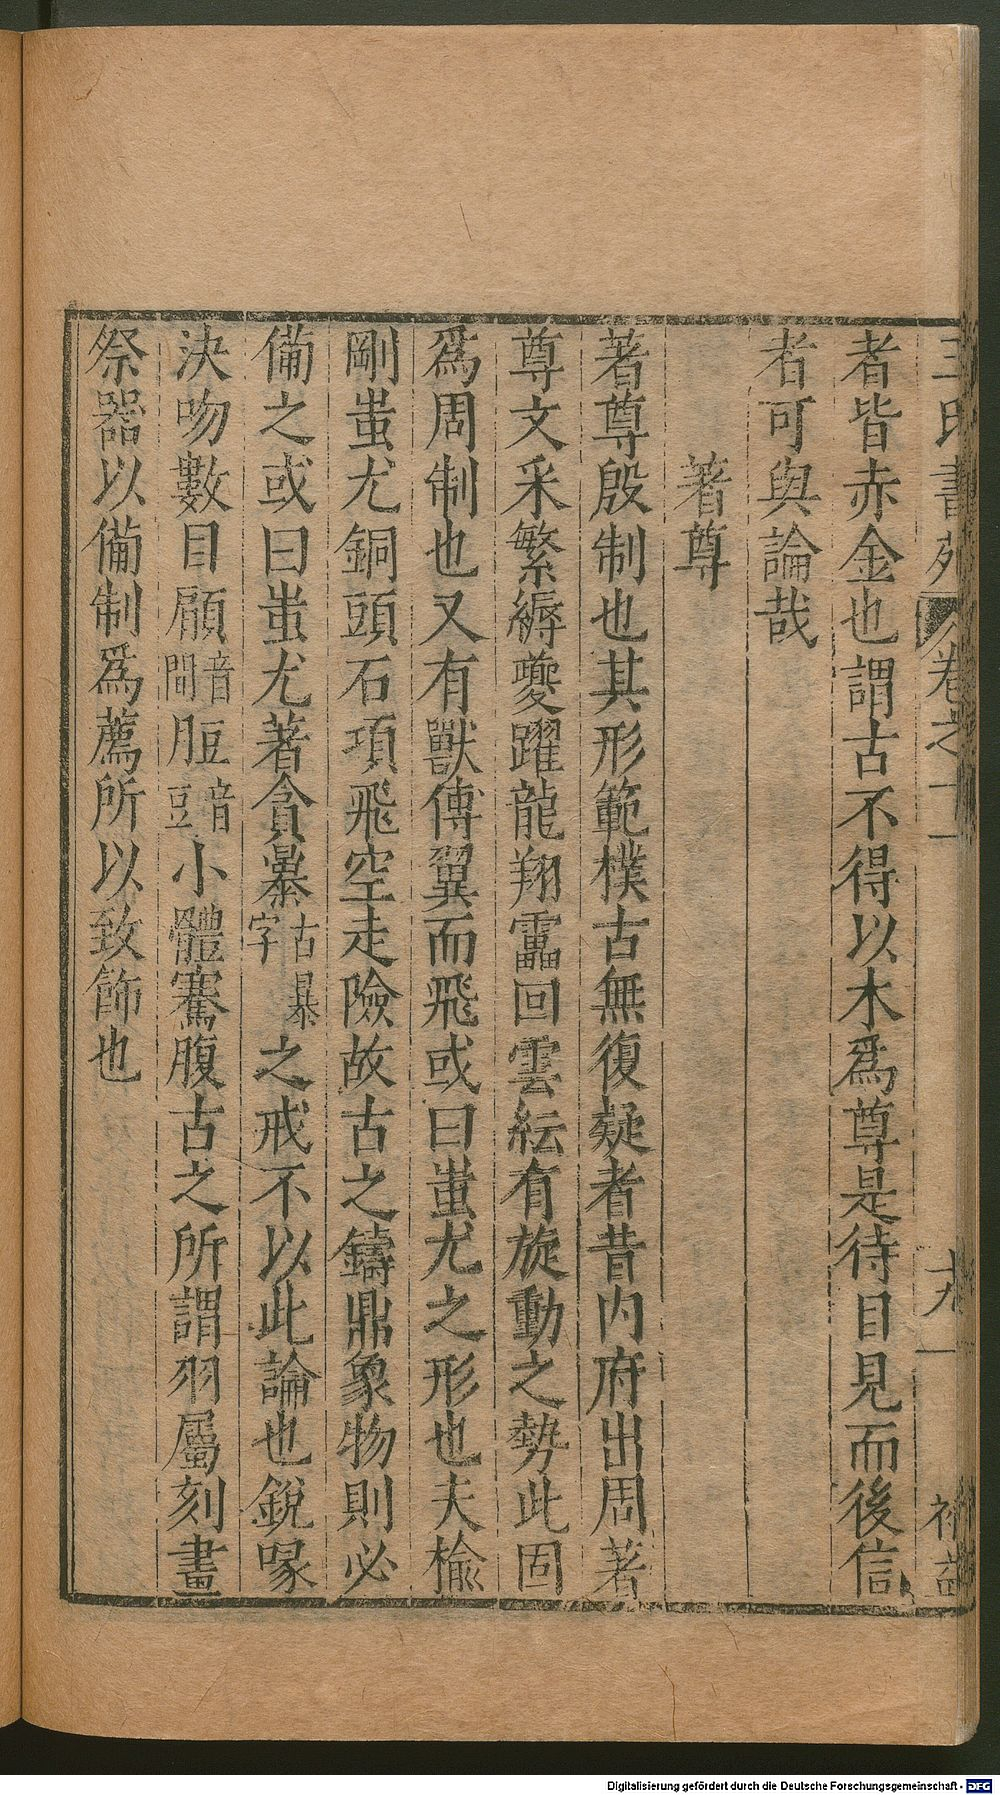 王氏書苑 卷之一 十九 補益
者皆赤金也謂古不得以木爲尊是待目見而後信
者可與論哉
著尊
著尊殷制也其形範樸古無復疑者昔内府出周著
尊文采繁縟夔躍龍翔靁回雲紜有旋動之勢此固
爲周制也又有獸傅翼而飛或曰蚩尤之形也夫楡
剛蚩尤銅頭石項飛空走險故古之鑄鼎象物則必
備之或曰蚩尤著貪暴古暴字之戒不以此論也銳喙
決吻數目顅音間脰音豆小體騫腹古之所謂羽屬刻畫
祭器以備制爲薦所以致飾也
Digitalisierung gefördert durch die Deutsche Forschungsgemeinschaft - DFG